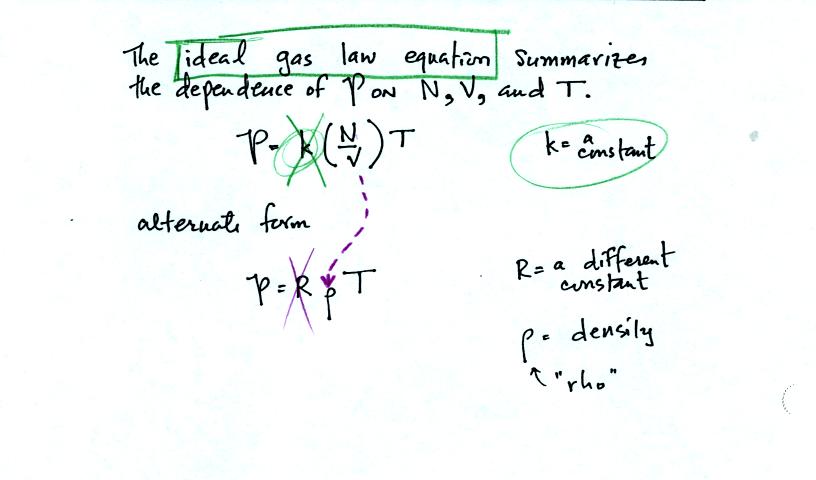 The ideal gas law equation summarizes
the dependence of P on N, V, and T.
P = k (N/V) T
k = a constant
alternate form
P = R ρ T
R = a different
constant
ρ = density
↑ "rho"